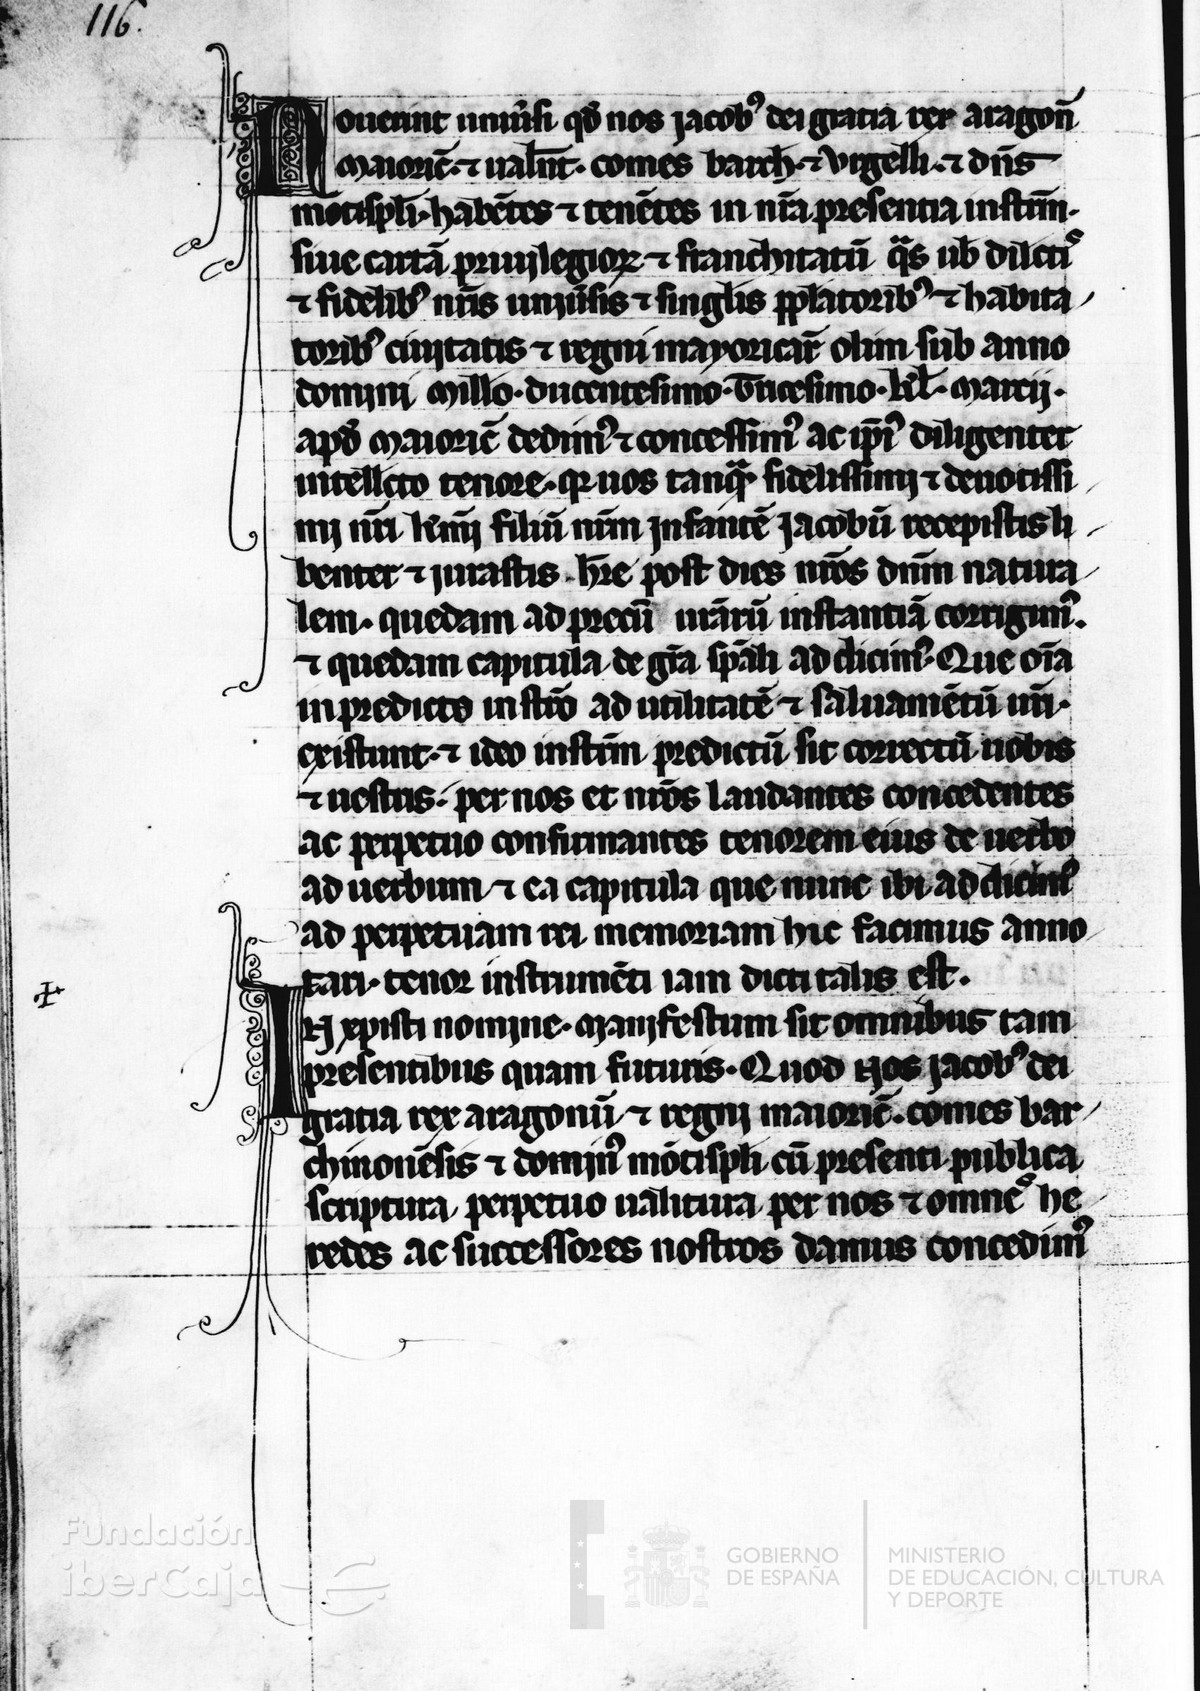 116.
Nouerint uniu̾si qd̾ nos jacob⁹ dei gratia rex aragoñ
Maioric̄. ⁊ ualen̄t. comes barch̄. ⁊ Vrgelli. ⁊ dn̄s
mōtispl̄i. habētes ⁊ tenētes in nr̄a presentia instrm̄.
siue cartā priuilegioꝝ ⁊ franchitatū q̄s uob̄ dilcīs
⁊ fidelib⁹ nr̄is uniu̾sis ⁊ singl̄is pplatorib⁹ ⁊ habita
torib⁹ ciuitatis ⁊ regni mayoricar̄ olim sub anno
domini Mill̄o. ducentesimo. Tricesimo. kl̄. Marcij.
apd̾ Maioric̄ dedim⁹ ⁊ concessim⁹ ac ip̄i⁹ diligenter
intellecto tenore. qr uos tanq̄ꝫ fidelissimi ⁊ deuotissi
mi nr̄i kr̄mi filiū nr̄m infantē Jacobū recepistis li
benter ⁊ jurastis hr̄e post dies nr̄os dn̄m natura
lem. quedam ad precū ur̄arū instantiā corrigim⁹.
⁊ quedam capitula de gr̄a sp̄ali addicim⁹. Que oīa
in predicto instr̄o ad utilitatē ⁊ saluamētū ur̄i.
existunt. ⁊ ideo instrm̄ predictū sic correctū uobis
⁊ uestris. per nos et nr̄os laudantes concedentes
ac perpetuo confirmantes tenorem eius de uerbo
ad uerbum ⁊ ea capitula que nunc ibi addicim⁹
ad perpetuam rei memoriam hic facimus anno
tari. tenor instrumēti iam dicti talis est.
IN xp̄isti nomine. Manifestum sit omnibus tam
presentibus quam futuris. Quod Nos Jacob⁹ dei
gratia rex aragonū ⁊ regni maioric̄. comes bar
chinonēsis ⁊ domin⁹ mōtispl̄i cū presenti publica
scriptura perpetuo ualitura per nos ⁊ omnes he
redes ac successores nostros damus concedim⁹
Fundación
iberCaja
GOBIERNO
DE ESPAÑA
MINISTERIO
DE EDUCACIÓN, CULTURA
Y DEPORTE